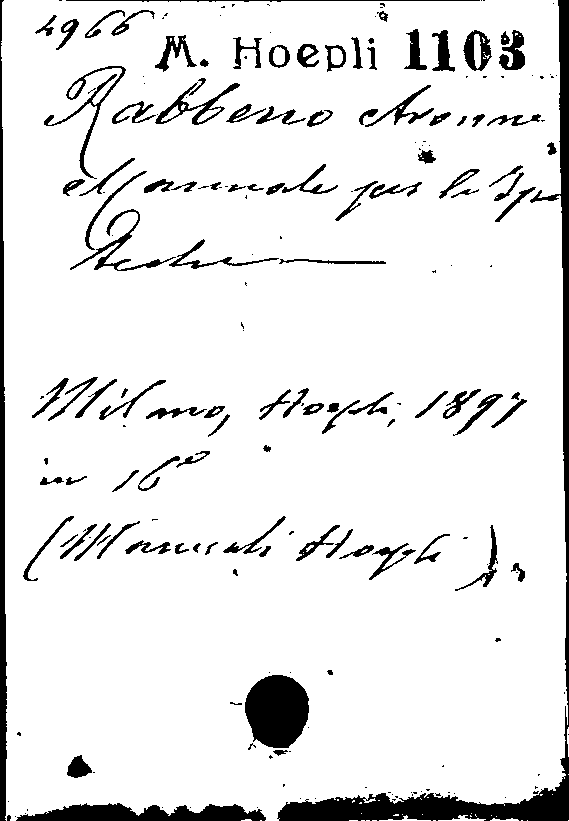 4966
M. Hoepli 1103
Rabbeno Aronne
Manuale per le Ipo
teche
Milano, Hoepli, 1897
in 16º
(Manuali Hoepli)